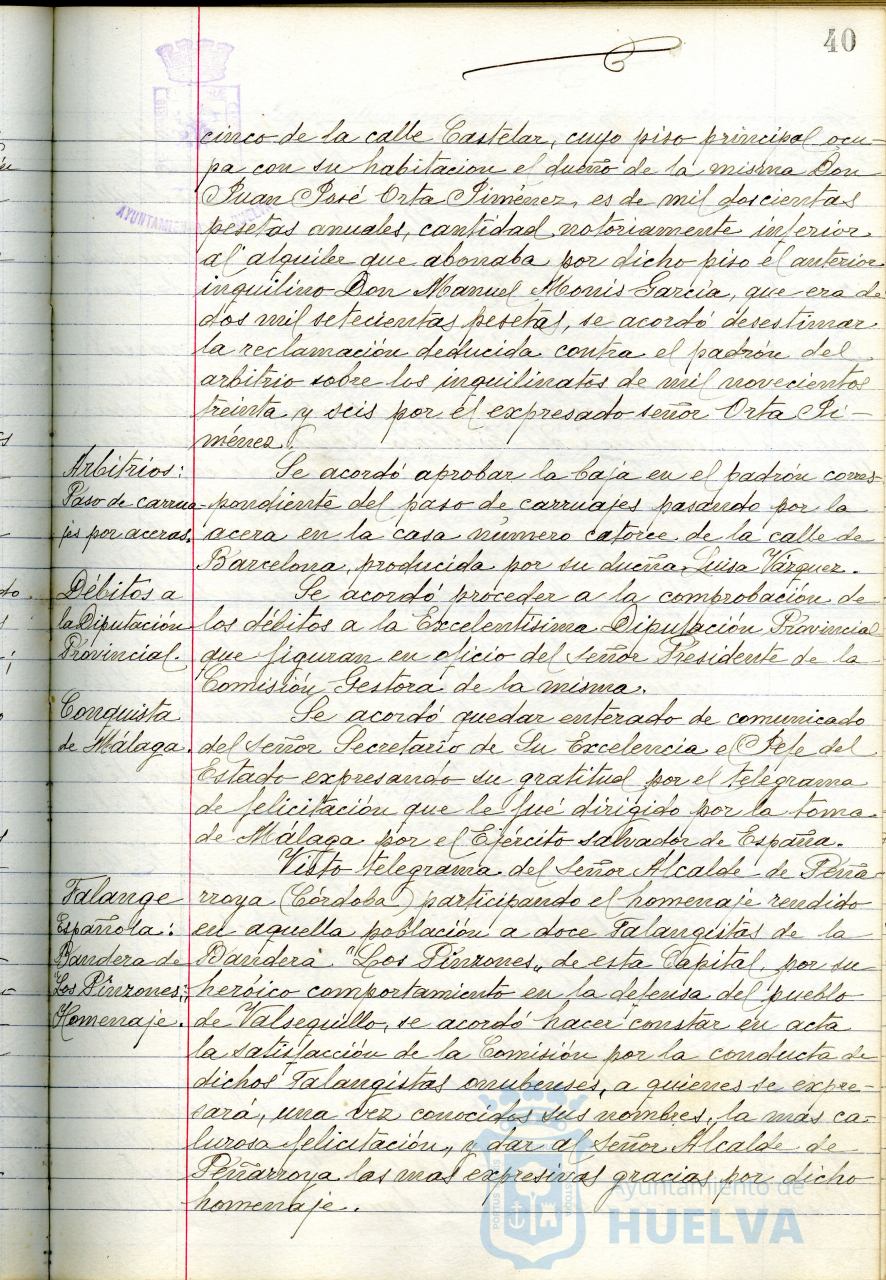 40
cinco de la calle Castelar, cuyo piso principal ocu-
pa con su habitacion el dueño de la misma Don
Juan José Orta Jiménez, es de mil doscientas
pesetas anuales, cantidad notoriamente inferior
al alquiler que abonaba por dicho piso el anterior
inquilino Don Manuel Monis García, que era de
dos mil setecientas pesetas, se acordó desestimar
la reclamación deducida contra el padrón del
arbitrio sobre los inquilinatos de mil novecientos
treinta y seis por el expresado señor Orta Ji-
ménez.
Arbitrios:
Paso de carrua-
jes por aceras.
Se acordó aprobar la baja en el padrón corres-
pondiente del paso de carruajes pasando por la
acera en la casa número catorce de la calle de
Barcelona, producida por su dueña Luisa Vázquez.
Débitos a
la Diputación
Provincial.
Se acordó proceder a la comprobación de
los débitos a la Excelentísima Diputación Provincial
que figuran en oficio del señor Presidente de la
Comisión Gestora de la misma.
Conquista
de Málaga.
Se acordó quedar enterado de comunicado
del señor Secretario de Su Excelencia el Jefe del
Estado expresando su gratitud por el telegrama
de felicitación que le fué dirigido por la toma
de Málaga por el Ejército salvador de España.
Falange
Española:
Bandera de
"Los Pinzones":
Homenaje.
Visto telegrama del señor Alcalde de Peña-
rroya (Córdoba) participando el homenaje rendido
en aquella población a doce Falangistas de la
Bandera "Los Pinzones" de esta Capital, por su
heróico comportamiento en la defensa del pueblo
de Valsequillo, se acordó hacer constar en acta
la satisfacción de la Comisión por la conducta de
dichos Falangistas onubenses, a quienes se expre-
sará, una vez conocidos sus nombres, la más ca-
lurosa felicitación, y dar al señor Alcalde de
Peñarroya las mas expresivas gracias por dicho
homenaje.
Ayuntamiento de
HUELVA